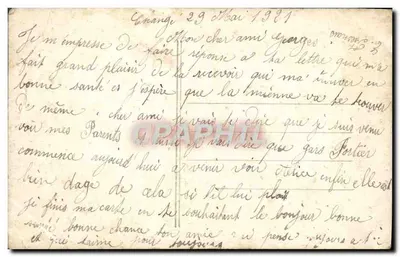 29 Mai 1921
Mon cher ami Georges
Je m'empresse de faire réponse a ta lettre qui m'a
fait grand plaisir de la recevoir qui ma trouver en
bonne santé es j'espère que la mienne va te trouver
de même cher ami je vais te dire que je suis venu
voir mes Parents je vais dire que gars Fortier
commence aujourd'hui a venir voir enfin elle est
bien de cela si s'it lui plai
je finis ma carte en te souhaitant le bonjour bonne
bonne chance ton amie qui pense toujours a toi
et qui t'aime pour toujours